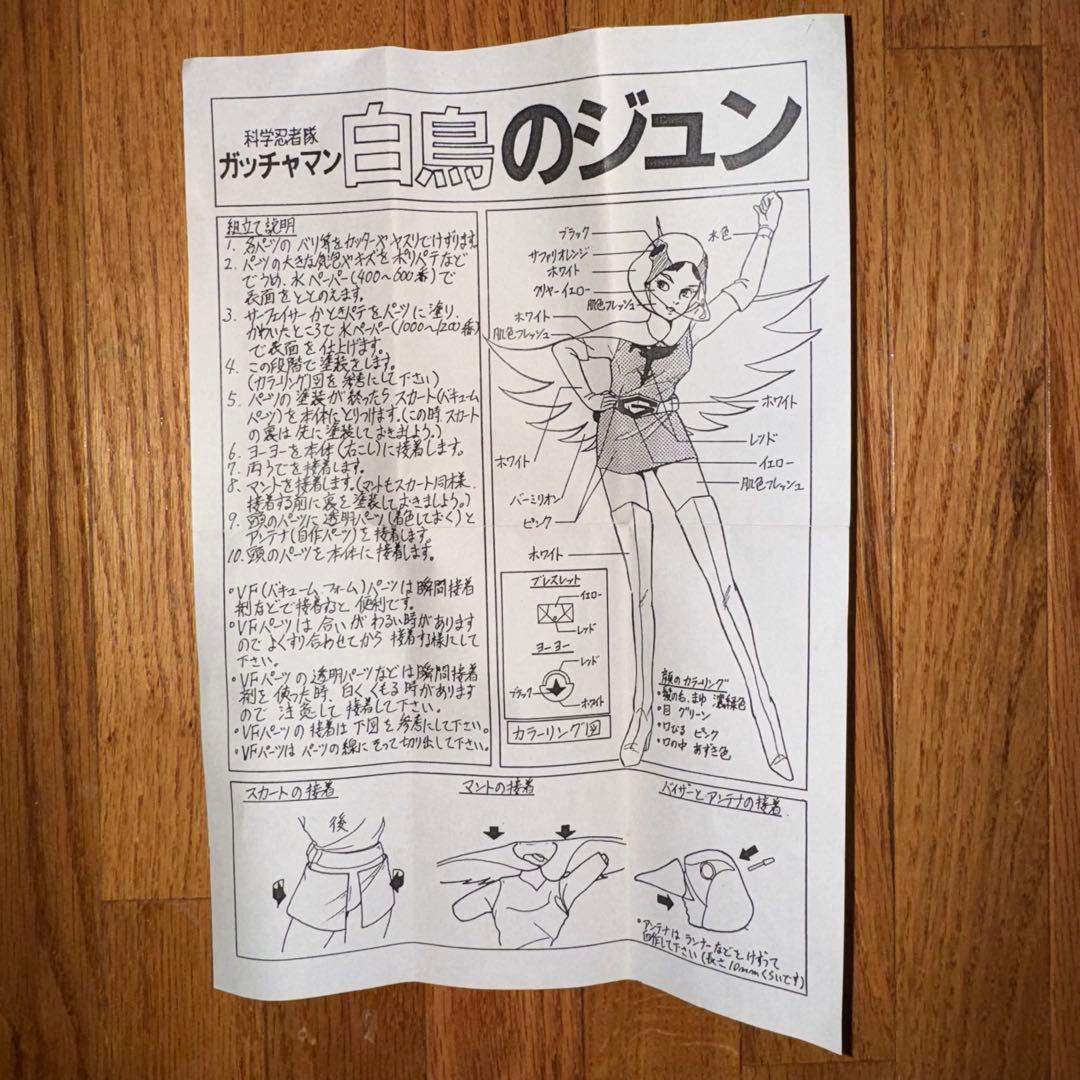 科学忍者隊
ガッチャマン
白鳥のジュン
組立て説明
1. 各パーツのバリ等をカッターやヤスリでけずります。
2. パーツの大きな気泡やキズをポリパテなど
でうめ、水ペーパー(400〜600番)で
表面をととのえます。
3. サーフェイサーかときパテをパーツに塗り、
かわいたところで水ペーパー(1000〜1200番)
で表面を仕上げます。
4. この段階で塗装をします。
(カラーリング図を参考にして下さい)
5. パーツの塗装が終ったらスカート(バキューム
パーツ)を本体にとりつけます。(この時、スカート
の裏は先に塗装しておきましょう。)
6. ヨーヨーを本体(右こし)に接着します。
7. 両うでを接着します。
8. マントを接着します。(マントもスカート同様、
接着する前に裏を塗装しておきましょう。)
9. 頭のパーツに透明パーツ(着色しておく)と
アンテナ(自作パーツ)を接着します。
10. 頭のパーツを本体に接着します。
・VF(バキュームフォーム)パーツは瞬間接着
剤などで接着すると便利です。
・VFパーツは合いがわるい時があります
のでよくすり合わせてから接着する様にして
下さい。
・VFパーツの透明パーツなどは瞬間接着
剤を使った時、白くくもる時があります
ので注意して接着して下さい。
・VFパーツの接着は下図を参考にして下さい。
・VFパーツはパーツの線にそって切り出して下さい。
ブラック
サファリオレンジ
ホワイト
クリヤーイエロー
肌色フレッシュ
ホワイト
肌色フレッシュ
水色
ホワイト
レッド
イエロー
肌色フレッシュ
ホワイト
バーミリオン
ピンク
ホワイト
ブレスレット
イエロー
レッド
ヨーヨー
レッド
ブラック
ホワイト
カラーリング図
顔のカラーリング
・髪の毛、まゆ 濃緑色
・目 グリーン
・口びる ピンク
・口の中 あずき色
スカートの接着
後
マントの接着
バイザーとアンテナの接着
・アンテナはランナーなどをけずって
自作して下さい(長さ10mmくらいです)